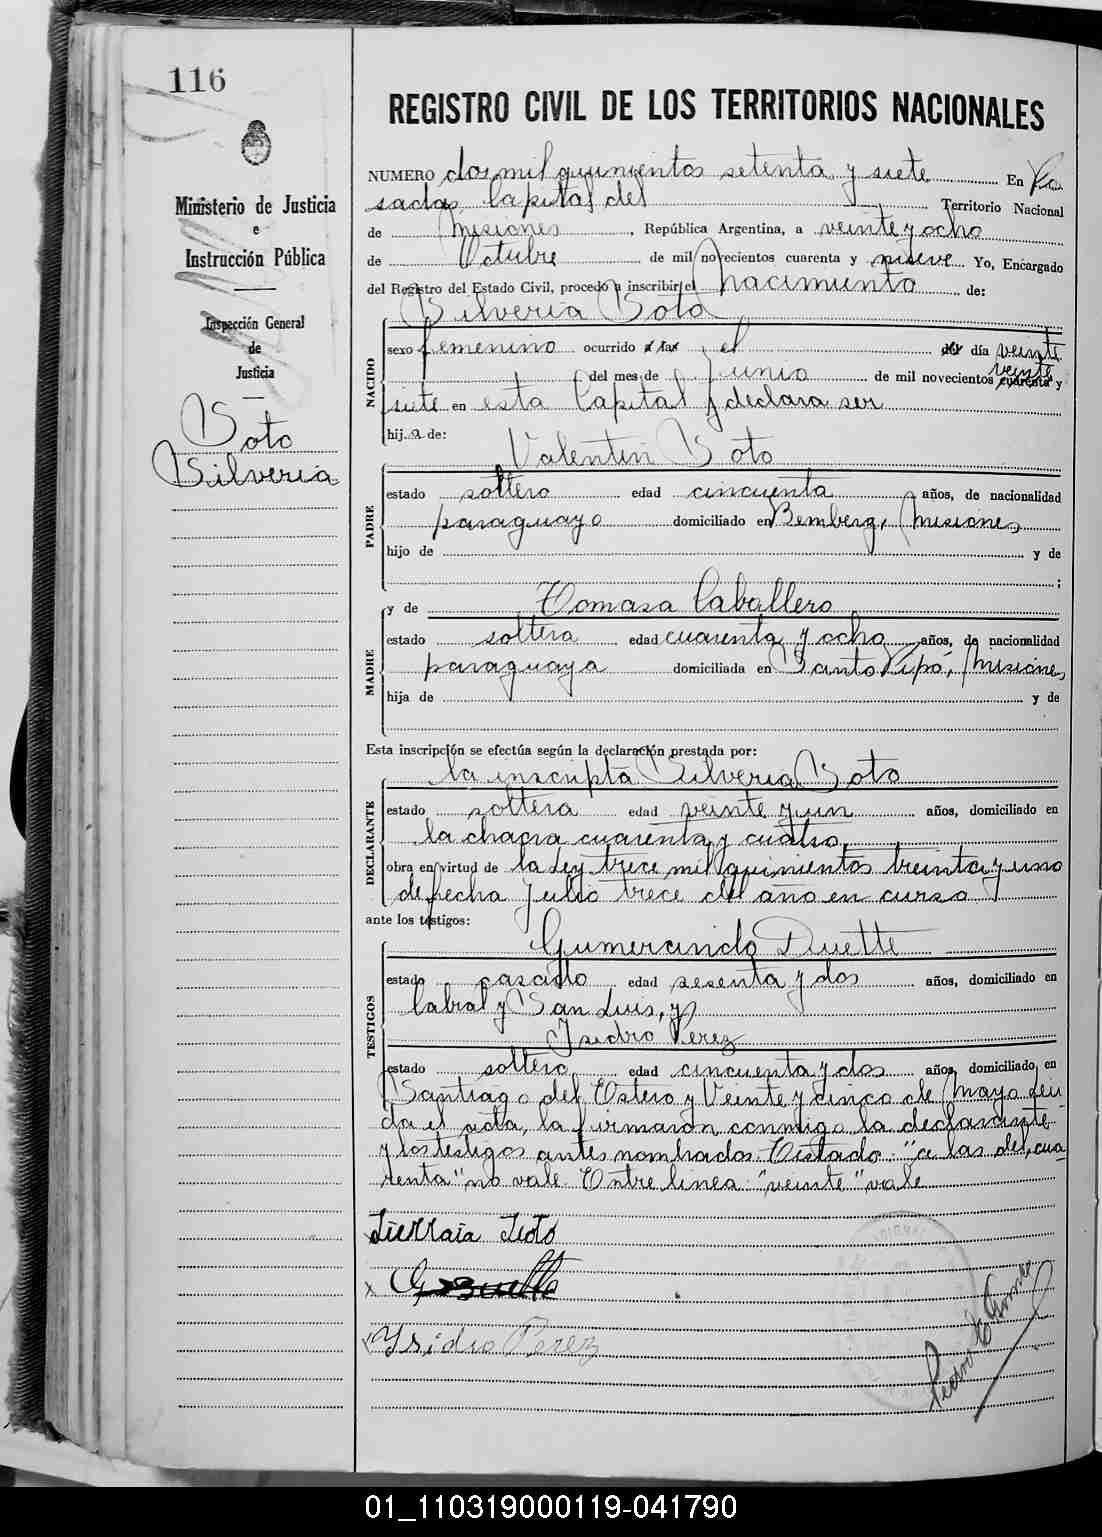 116
Ministerio de Justicia
e
Instrucción Pública
Inspección General
de
Justicia
Soto
Silveria
REGISTRO CIVIL DE LOS TERRITORIOS NACIONALES
NUMERO dos mil quinientos setenta y siete En Po
sadas, capital del Territorio Nacional
de Misiones, República Argentina, a veinte y ocho
de Octubre de mil novecientos cuarenta y nueve Yo, Encargado
del Registro del Estado Civil, procedo a inscribir el nacimiento de:
Silveria Soto
NACIDO
sexo femenino ocurrido a las el del día veinte
veinte
del mes de Junio de mil novecientos cuarenta y
siete en esta Capital y declara ser
hij a de:
Valentin Soto
PADRE
estado soltero edad cincuenta años, de nacionalidad
paraguayo domiciliado en Bemberg, Misiones
hijo de y de
;
y de Tomasa Caballero
MADRE
estado soltera edad cuarenta y ocho años, de nacionalidad
paraguaya domiciliada en Santo Pipó, Misiones
hija de y de
Esta inscripción se efectúa según la declaración prestada por:
la inscripta Silveria Soto
DECLARANTE
estado soltera edad veinte y un años, domiciliado en
la chacra cuarenta y cuatro,
obra en virtud de la Ley trece mil quinientos treinta y uno
de fecha Julio trece del año en curso
ante los testigos:
Gumercindo Duette
TESTIGOS
estado casado edad sesenta y dos años, domiciliado en
Cabral y San Luis, y
Isidro Perez
estado soltero edad cincuenta y dos años, domiciliado en
Santiago del Estero y Veinte y cinco de Mayo Leí
da el acta, la firmaron conmigo la declarante
y los testigos antes nombrados. Testado: "a las del, cua
renta" no vale. Entre linea: "veinte" vale
Soto
x
Ysidro Perez
01_110319000119-041790